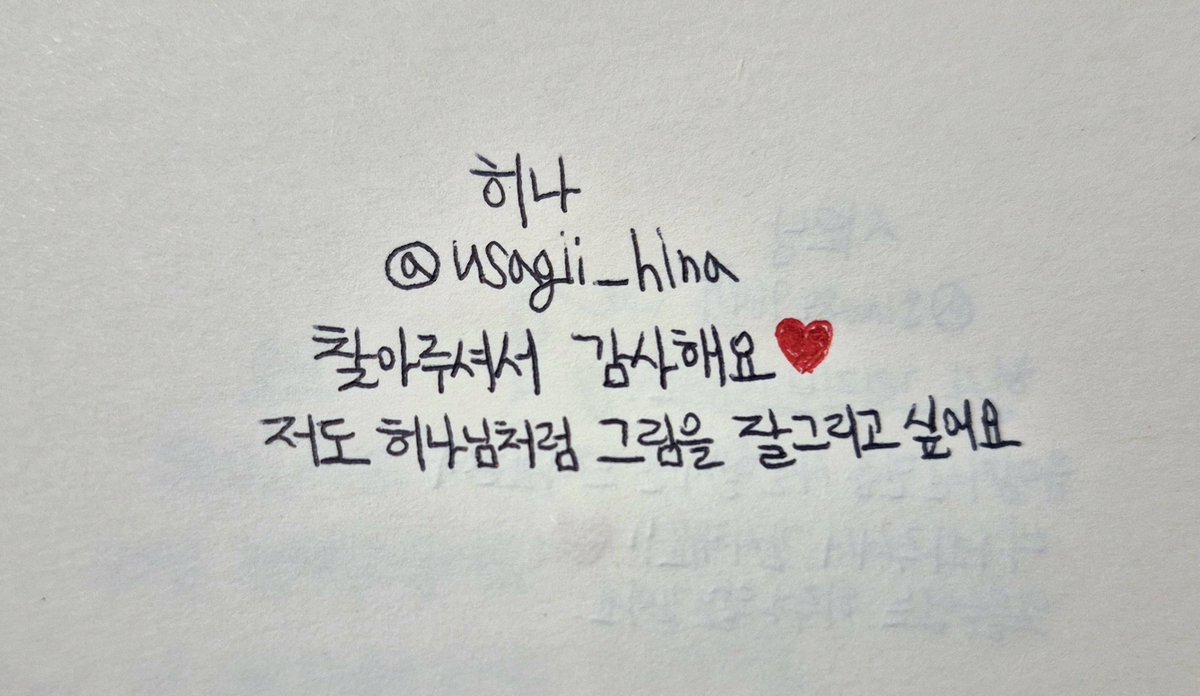 허나
@usagii_hina
찾아주셔서 감사해요
저도 허나님처럼 그림을 잘그리고 싶어요